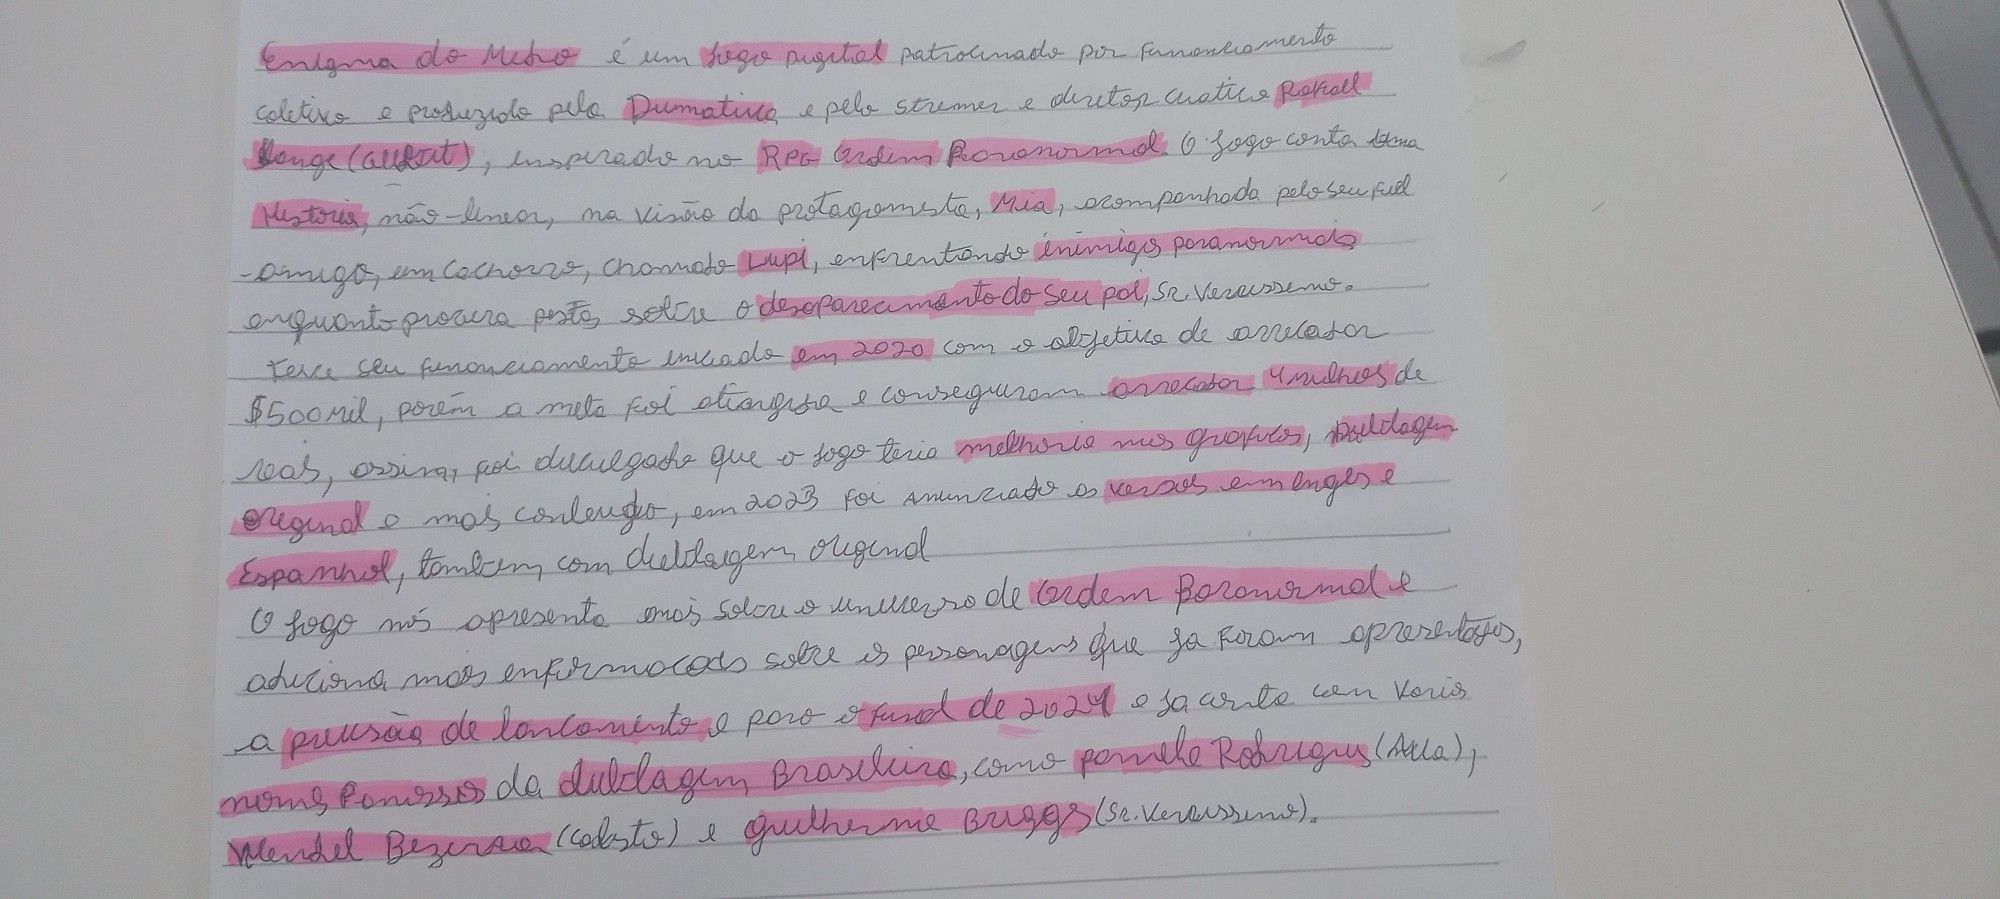 Enigma do Medo é um jogo digital patrocinado por financiamento
coletivo e produzido pela Dumativa e pelo stremer e diretor criativo Rafael
Lange (Cellbit), inspirado no RPG Ordem Paranormal. O jogo conta uma
Historia, não-linear, na visão da protagonista, Mia, acompanhada pelo seu fiel
-amigo, um cachorro, chamado Lupi, enfrentando inimigos paranormais
enquanto procura pistas sobre o desaparecimento do seu pai, Sr. Verissimo.
Teve seu financiamento iniciado em 2020 com o objetivo de arrecadar
$500 mil, porém a meta foi atingida e conseguiram arrecadar 4 milhões de
reais, assim, foi divulgado que o jogo teria melhoria nos graficos, dublagem
original e mais conteudo, em 2023 foi anunciado as versões em inglês e
Espanhol, também com dublagem original
O jogo nós apresenta mais sobre o universo de Ordem Paranormal e
adiciona mais informações sobre os personagens que ja foram apresentados,
a previsão de lançamento e para o final de 2024 e ja conta com varios
nomes famosos da dublagem Brasileira, como Rodrigues
Wendel Bezerra e guilherme Briggs (Sr. Verissimo).